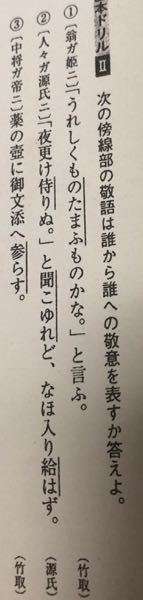 本ドリルⅡ 次の傍線部の敬語は誰から誰への敬意を表すか答えよ。
① 〔翁ガ姫ニ〕「うれしくものたまふものかな。」と言ふ。（竹取）
② 〔人々ガ源氏ニ〕「夜更け侍りぬ。」と聞こゆれど、なほ入り給はず。（源氏）
③ 〔中将ガ帝ニ〕薬の壺に御文添へ参らす。（竹取）